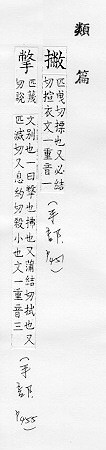 類篇
撇
匹曳切摽也又必結
切衣文一重音一
(手部 P451)
撆
匹蔑
切說
文別也一曰擊也拂也又蒲結切拭也又
匹滅切又息約切殺小也文一重音三
(手部 P455)